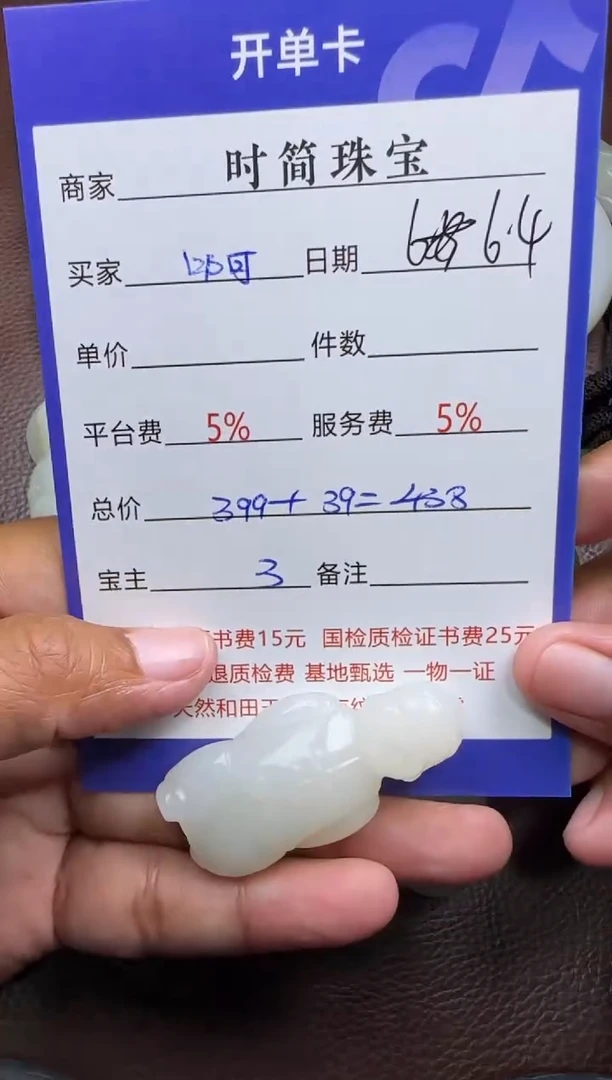 开单卡
商家 时简珠宝
买家 日期 6.4
单价 件数
平台费 5% 服务费 5%
总价 399+39=438
宝主 3 备注
书费15元 国检质检证书费25元
退质检费 基地甄选 一物一证
天然和田玉